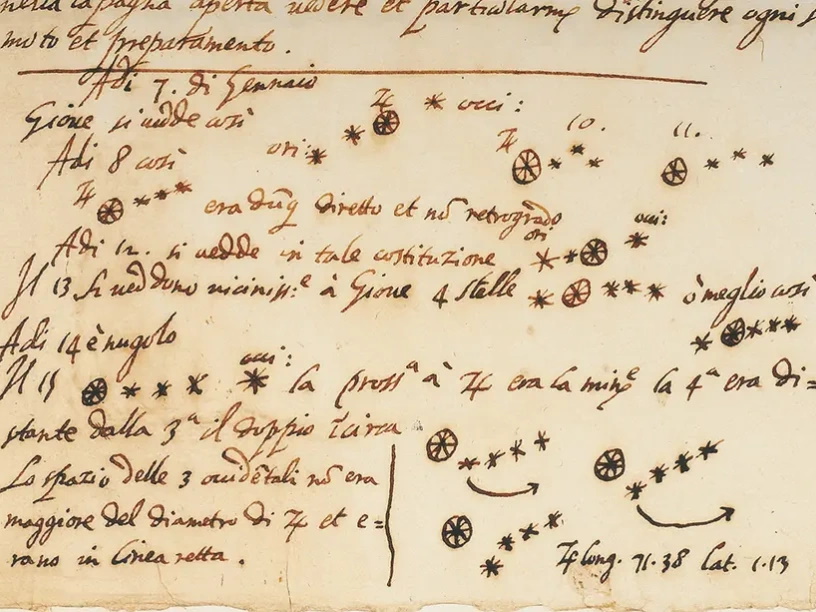 nella capagna aperta vedere et particularme distinguere ogni s
moto et preparamento.
Adi 7. di Gennaio
Giove si vedde così ♃ occi:
Adi 8 così ori: ♃ 10. 11.
♃ era dūq diretto et nō retrogrado
Adi 12. si vedde in tale costituzione ori occi:
Il 13 si veddono vicinissᵉ à Giove 4 stelle ò meglio così
Adi 14 è nugolo
Il 15 occi: la prossᵃ à ♃ era la minᵉ la 4ᵃ era di=
stante dalla 3ᵃ il doppio ī circa
Lo spazio delle 3 occidētali nō era
maggiore del diametro di ♃ et e=
rano in linea retta.
♃ long. 71.38 lat. 1.13